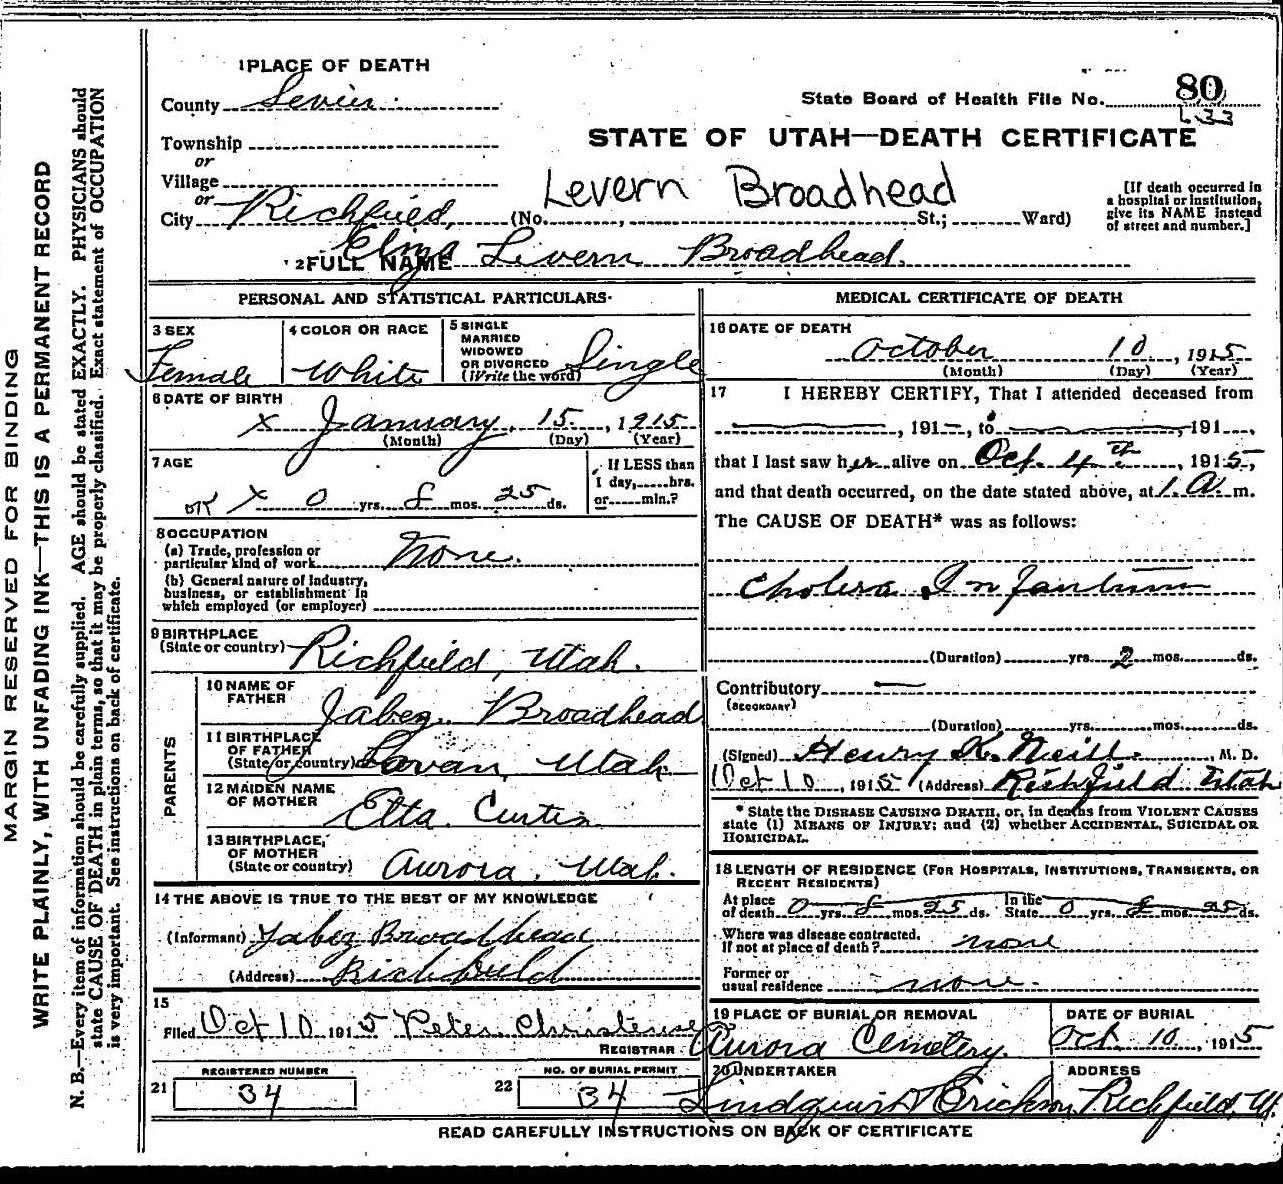 MARGIN RESERVED FOR BINDING
WRITE PLAINLY, WITH UNFADING INK—THIS IS A PERMANENT RECORD
N. B.—Every item of information should be carefully supplied. AGE should be stated EXACTLY. PHYSICIANS should
state CAUSE OF DEATH in plain terms, so that it may be properly classified. Exact statement of OCCUPATION
is very important. See instructions on back of certificate.
1 PLACE OF DEATH
County Sevier
Township
or
Village
or
City Richfield, (No. , St.; Ward)
State Board of Health File No. 80
633
STATE OF UTAH—DEATH CERTIFICATE
Levern Broadhead
[If death occurred in
a hospital or institution,
give its NAME instead
of street and number.]
2 FULL NAME Eliza Livern Broadhead.
PERSONAL AND STATISTICAL PARTICULARS
3 SEX
Female
4 COLOR OR RACE
White
5 SINGLE
MARRIED
WIDOWED
OR DIVORCED
(Write the word)
Single
6 DATE OF BIRTH
x January, 15, 1915
(Month) (Day) (Year)
7 AGE
OK x 0 yrs. 8 mos. 25 ds.
If LESS than
1 day, hrs.
or min.?
8 OCCUPATION
(a) Trade, profession or
particular kind of work None.
(b) General nature of industry,
business, or establishment in
which employed (or employer)
9 BIRTHPLACE
(State or country) Richfield, Utah.
PARENTS
10 NAME OF
FATHER Jabez Broadhead
11 BIRTHPLACE
OF FATHER
(State or country) Levan, Utah
12 MAIDEN NAME
OF MOTHER Etta Curtis
13 BIRTHPLACE,
OF MOTHER
(State or country) Aurora, Utah.
14 THE ABOVE IS TRUE TO THE BEST OF MY KNOWLEDGE
(Informant) Jabez Broadhead
(Address) Richfield
15
Filed Oct 10 1915 Peter Christensen
REGISTRAR
21 REGISTERED NUMBER
34
22 NO. OF BURIAL PERMIT
34
MEDICAL CERTIFICATE OF DEATH
16 DATE OF DEATH
October 10, 1915
(Month) (Day) (Year)
17 I HEREBY CERTIFY, That I attended deceased from
, 191—, to , 191 ,
that I last saw her alive on Oct. 4th, 1915,
and that death occurred, on the date stated above, at 1. A. m.
The CAUSE OF DEATH* was as follows:
Cholera Infantum
(Duration) yrs. 2 mos. ds.
Contributory —
(SECONDARY)
(Duration) yrs. mos. ds.
(Signed) Henry K. Neill. M. D.
Oct 10, 1915 (Address) Richfield Utah
* State the DISEASE CAUSING DEATH, or, in deaths from VIOLENT CAUSES
state (1) MEANS OF INJURY; and (2) whether ACCIDENTAL, SUICIDAL OR
HOMICIDAL.
18 LENGTH OF RESIDENCE (FOR HOSPITALS, INSTITUTIONS, TRANSIENTS, OR
RECENT RESIDENTS)
At place of death 0 yrs. 8 mos. 25 ds. In the State 0 yrs. 8 mos. 25 ds.
Where was disease contracted.
If not at place of death? none
Former or
usual residence none.
19 PLACE OF BURIAL OR REMOVAL
Aurora Cemetery.
DATE OF BURIAL
Oct. 10, 1915
20 UNDERTAKER
Lindquist Erickson,
ADDRESS
Richfield, U.
READ CAREFULLY INSTRUCTIONS ON BACK OF CERTIFICATE